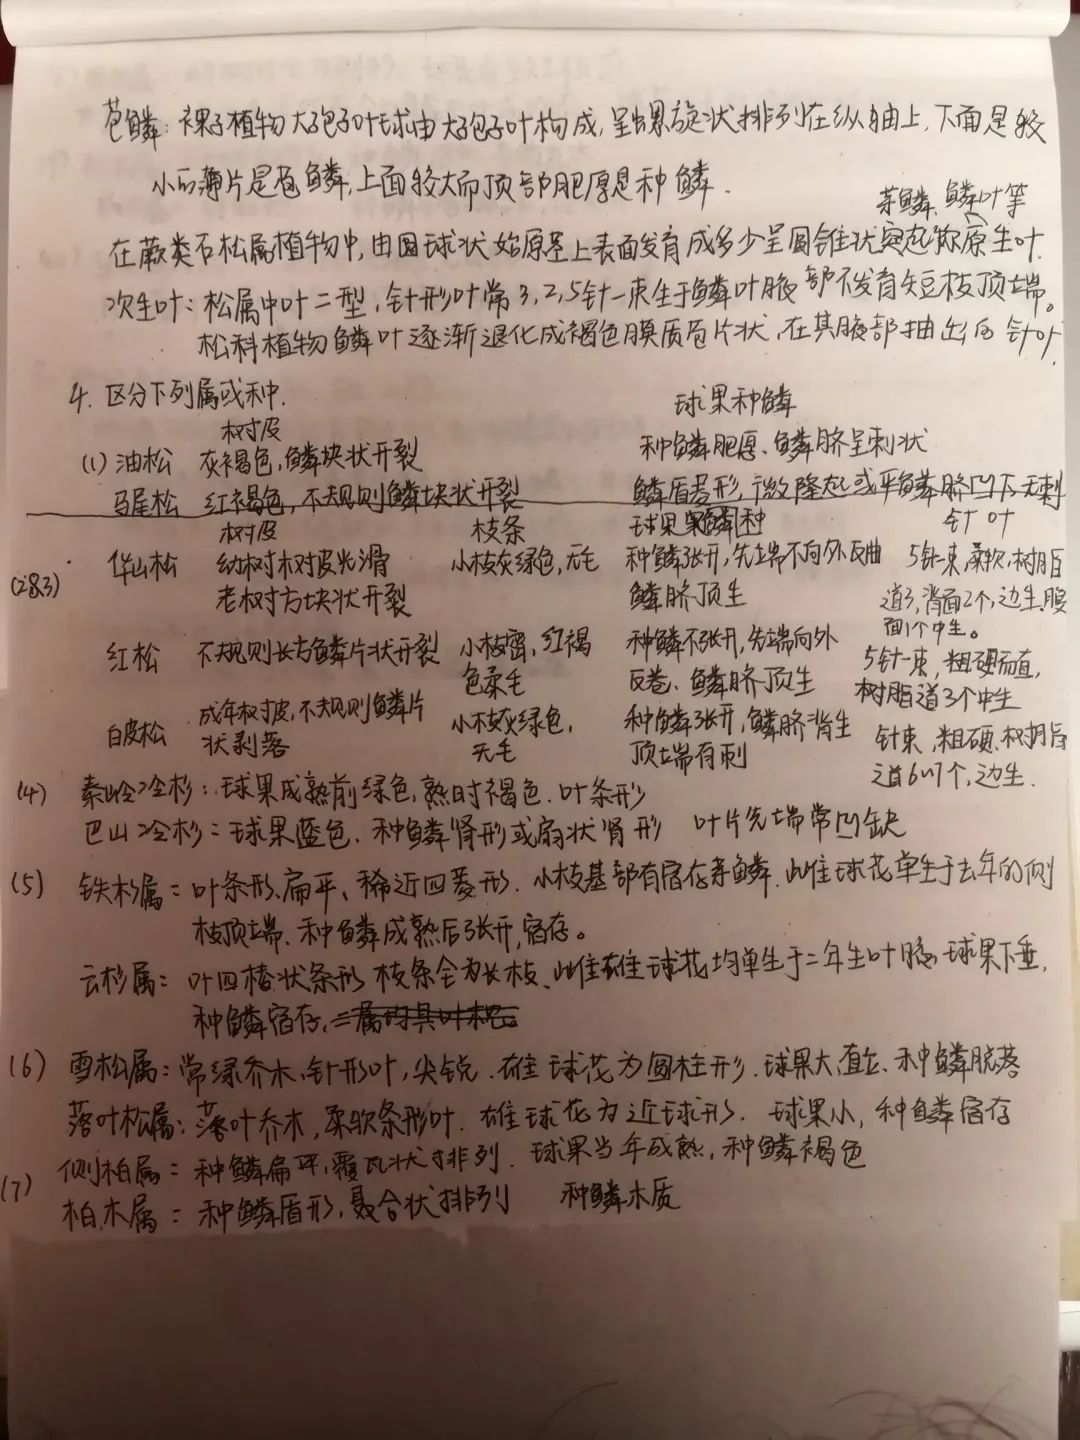 苞鳞:裸子植物大孢子叶球由大孢子叶构成,呈螺旋状排列在纵轴上,下面是较
小的薄片是苞鳞,上面较大而顶部肥厚是种鳞.
芽鳞、鳞叶等
在蕨类石松属植物中,由圆球状始原基上表面发育成多少呈圆锥状突起称原生叶.
次生叶:松属中叶二型,针形叶常3,2,5针一束生于鳞叶腋部不发育短枝顶端。
松科植物鳞叶逐渐退化成褐色膜质苞片状,在其腋部抽出的针叶.
4.区分下列属或种.
树皮 球果种鳞
(1)油松 灰褐色,鳞块状开裂 种鳞肥厚、鳞脐呈刺状
马尾松 红褐色,不规则鳞块状开裂 鳞盾菱形,微隆起或平鳞脐凹下无刺
树皮 枝条 球果 种 针叶
(2&3) 华山松 幼树树皮光滑 小枝灰绿色,无毛 种鳞张开,先端不向外反曲 5针一束,柔软,树脂
老树方块状开裂 鳞脐顶生 道3,背面2个,边生,腹
面1个中生。
红松 不规则长方鳞片状开裂 小枝密,红褐 种鳞不张开,先端向外 5针一束,粗硬而直,
色柔毛 反卷、鳞脐顶生 树脂道3个中生
白皮松 成年树皮,不规则鳞片 小枝灰绿色, 种鳞张开,鳞脐背生 针束,粗硬,树脂
状剥落 无毛 顶端有刺 道6~7个,边生.
(4) 秦岭冷杉:球果成熟前绿色,熟时褐色.叶条形
巴山冷杉:球果蓝色.种鳞肾形或扇状肾形 叶片先端常凹缺
(5) 铁杉属:叶条形、扁平、稀近四菱形.小枝基部有宿存芽鳞.雌球花单生于去年的侧
枝顶端、种鳞成熟后张开,宿存。
云杉属:叶四棱状条形 枝条全为长枝、雌雄球花均单生于二年生叶腋,球果下垂,
种鳞宿存,二属均具叶枕。
(6) 雪松属:常绿乔木,针形叶,尖锐.雄球花为圆柱形.球果大,直立、种鳞脱落
落叶松属:落叶乔木,柔软条形叶.雄球花为近球形. 球果小,种鳞宿存
(7) 侧柏属:种鳞扁平,覆瓦状排列.球果当年成熟,种鳞褐色
柏木属:种鳞盾形,聚合状排列 种鳞木质